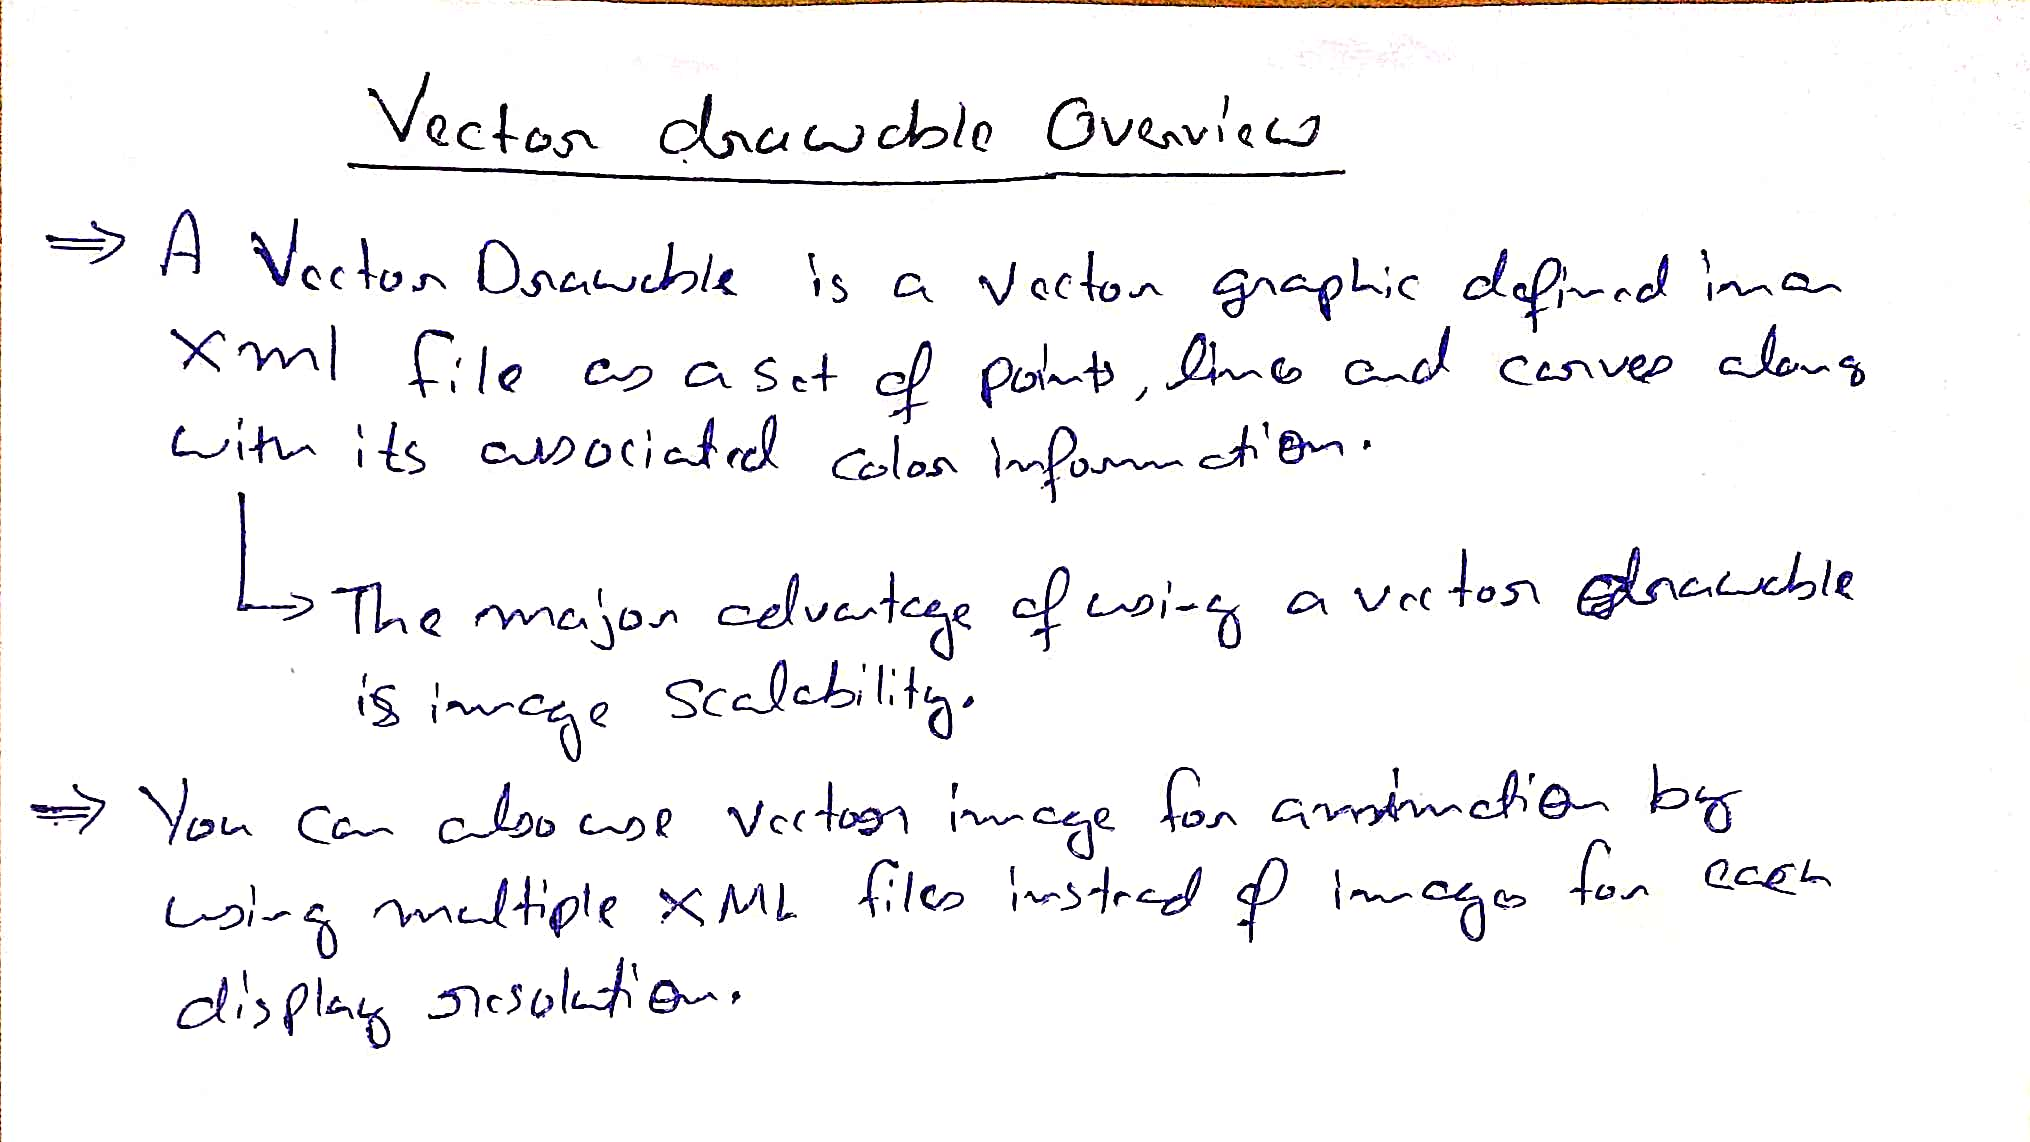 Vector drawable Overview
⇒ A Vector Drawable is a vector graphic defined in an
xml file as a set of points, lines and curves along
with its associated color information.
↳ The major advantage of using a vector drawable
is image scalability.
⇒ You can also use vector image for animation by
using multiple XML files instead of images for each
display resolution.